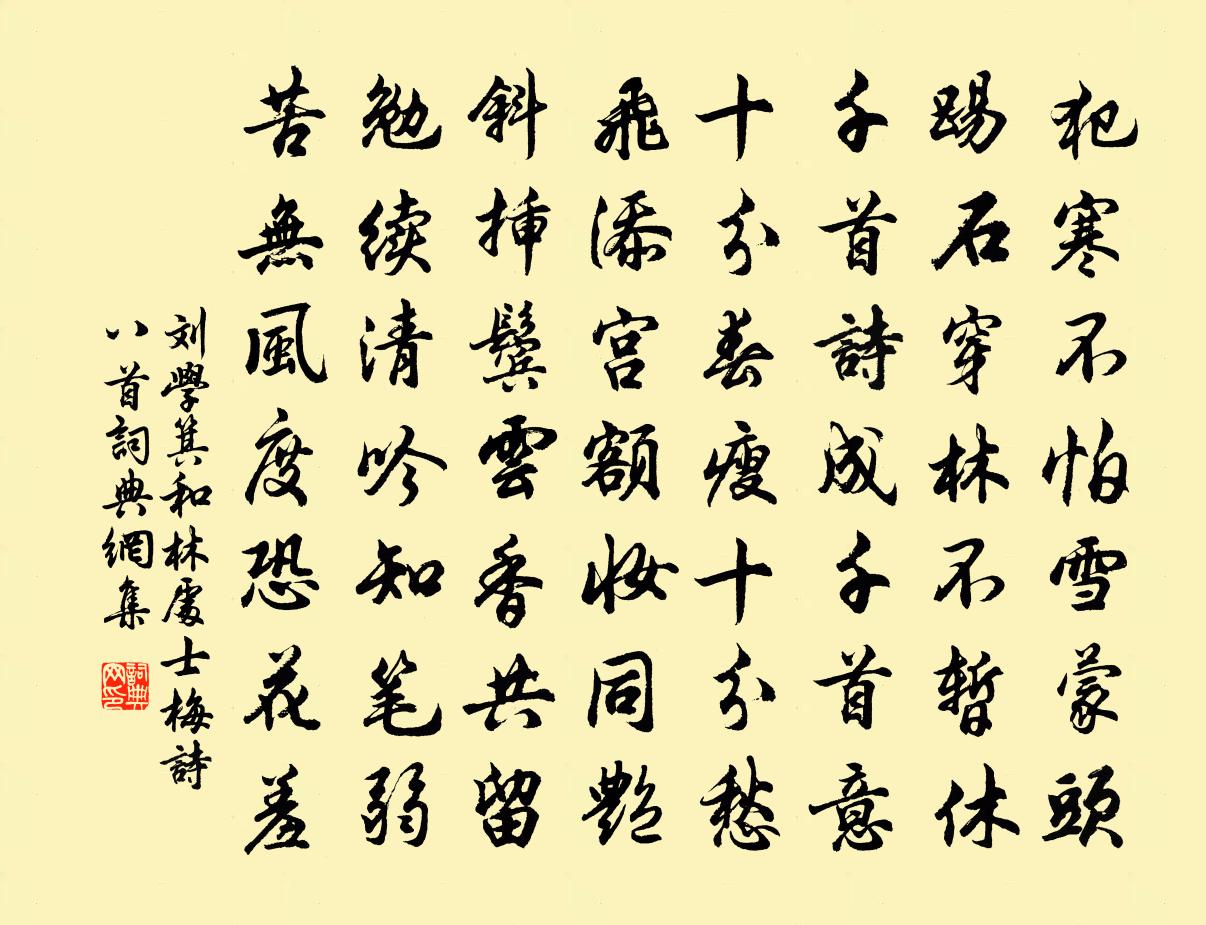 犯寒不怕雪蒙頭
踢石穿林不暫休
千首詩成千首意
十分春瘦十分愁
飛添宮額妝同艷
斜插鬓雲香共留
勉续清吟知笔弱
苦無風度恐花羞
刘學箕和林處士梅詩
八首詞典網集
詞典
网印